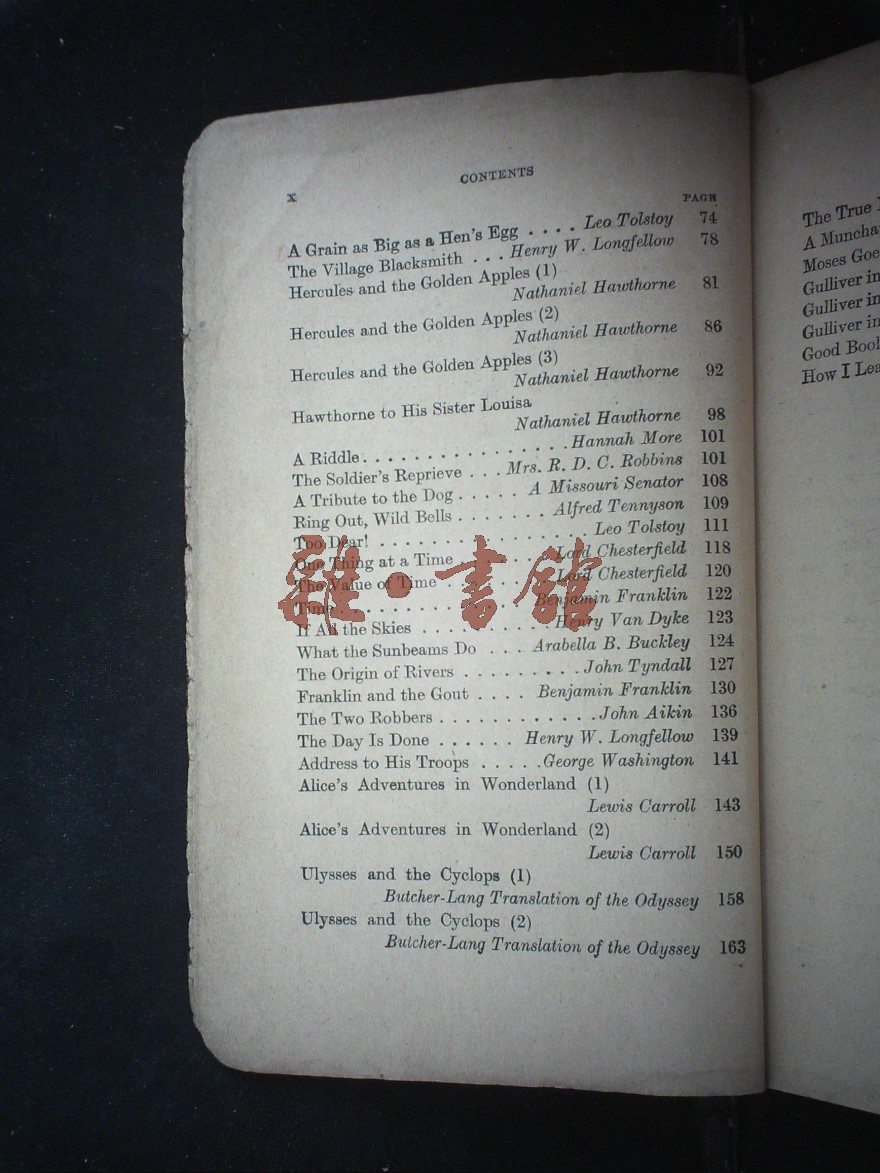 CONTENTS
x
PAGE
A Grain as Big as a Hen's Egg . . . . Leo Tolstoy 74
The Village Blacksmith . . . Henry W. Longfellow 78
Hercules and the Golden Apples (1)
Nathaniel Hawthorne 81
Hercules and the Golden Apples (2)
Nathaniel Hawthorne 86
Hercules and the Golden Apples (3)
Nathaniel Hawthorne 92
Hawthorne to His Sister Louisa
Nathaniel Hawthorne 98
A Riddle . . . . . . . . . . . . . . . . Hannah More 101
The Soldier's Reprieve . . . Mrs. R. D. C. Robbins 101
A Tribute to the Dog . . . . . A Missouri Senator 108
Ring Out, Wild Bells . . . . . . . Alfred Tennyson 109
Too Dear! . . . . . . . . . . . . . . . . Leo Tolstoy 111
One Thing at a Time . . . . . . . Lord Chesterfield 118
The Value of Time . . . . . . . . Lord Chesterfield 120
Time . . . . . . . . . . . . . . Benjamin Franklin 122
If All the Skies . . . . . . . . . . Henry Van Dyke 123
What the Sunbeams Do . . . Arabella B. Buckley 124
The Origin of Rivers . . . . . . . . . John Tyndall 127
Franklin and the Gout . . . . Benjamin Franklin 130
The Two Robbers . . . . . . . . . . . . . John Aikin 136
The Day Is Done . . . . . . Henry W. Longfellow 139
Address to His Troops . . . . . George Washington 141
Alice's Adventures in Wonderland (1)
Lewis Carroll 143
Alice's Adventures in Wonderland (2)
Lewis Carroll 150
Ulysses and the Cyclops (1)
Butcher-Lang Translation of the Odyssey 158
Ulysses and the Cyclops (2)
Butcher-Lang Translation of the Odyssey 163
雜·書館
The True
A Muncha
Moses Goe
Gulliver in
Gulliver in
Gulliver in
Good Bool
How I Lea